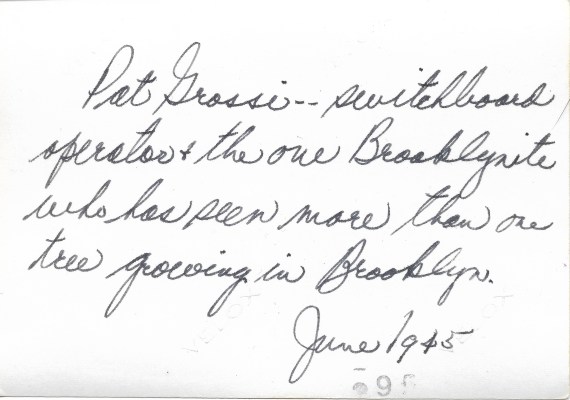 Pat Grossi-- switchboard
operator & the one Brooklynite
who has seen more than one
tree growing in Brooklyn.
June 1945